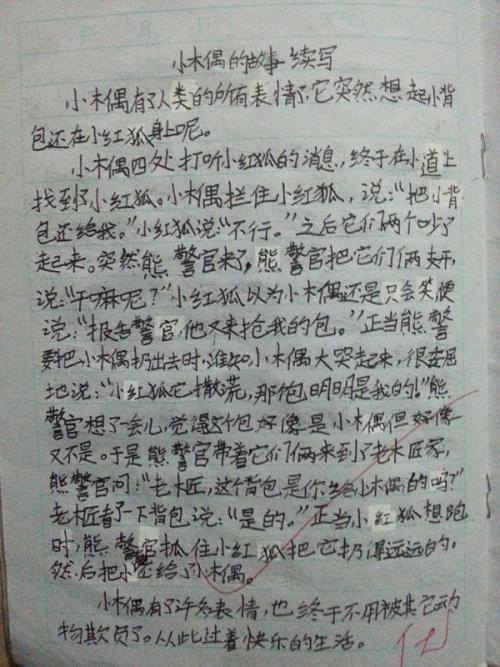 小木偶的故事续写
小木偶有了人类的所有表情了它突然想起小背
包还在小红狐身上呢。
小木偶四处打听小红狐的消息,终于在小道上
找到了小红狐。小木偶拦住小红狐,说:“把小背
包还给我。”小红狐说:“不行。”之后它们两个吵了
起来。突然熊警官来了,熊警官把它们俩
说:“干嘛呢?”小红狐以为小木偶还是只会笑便
说:“报告警官,他又来抢我的包。”正当熊警
要把小木偶扔出去时,谁知小木偶大哭起来,很委屈
地说:“小红狐它撒谎,那包明明是我的!”熊
警官想了一会儿,觉得这个包好像是小木偶但好像
又不是。于是熊警官带着它们俩来到了老木匠家,
熊警官问:“老木匠,这个背包是你给小木偶的吗?”
老木匠看了一下背包说:“是的。”正当小红狐想跑
时,熊警官抓住小红狐把它扔得远远的。
然后把小包给了小木偶。
小木偶有了许多表情,也终于不用被其它动
物欺负了。从此过着快乐的生活。